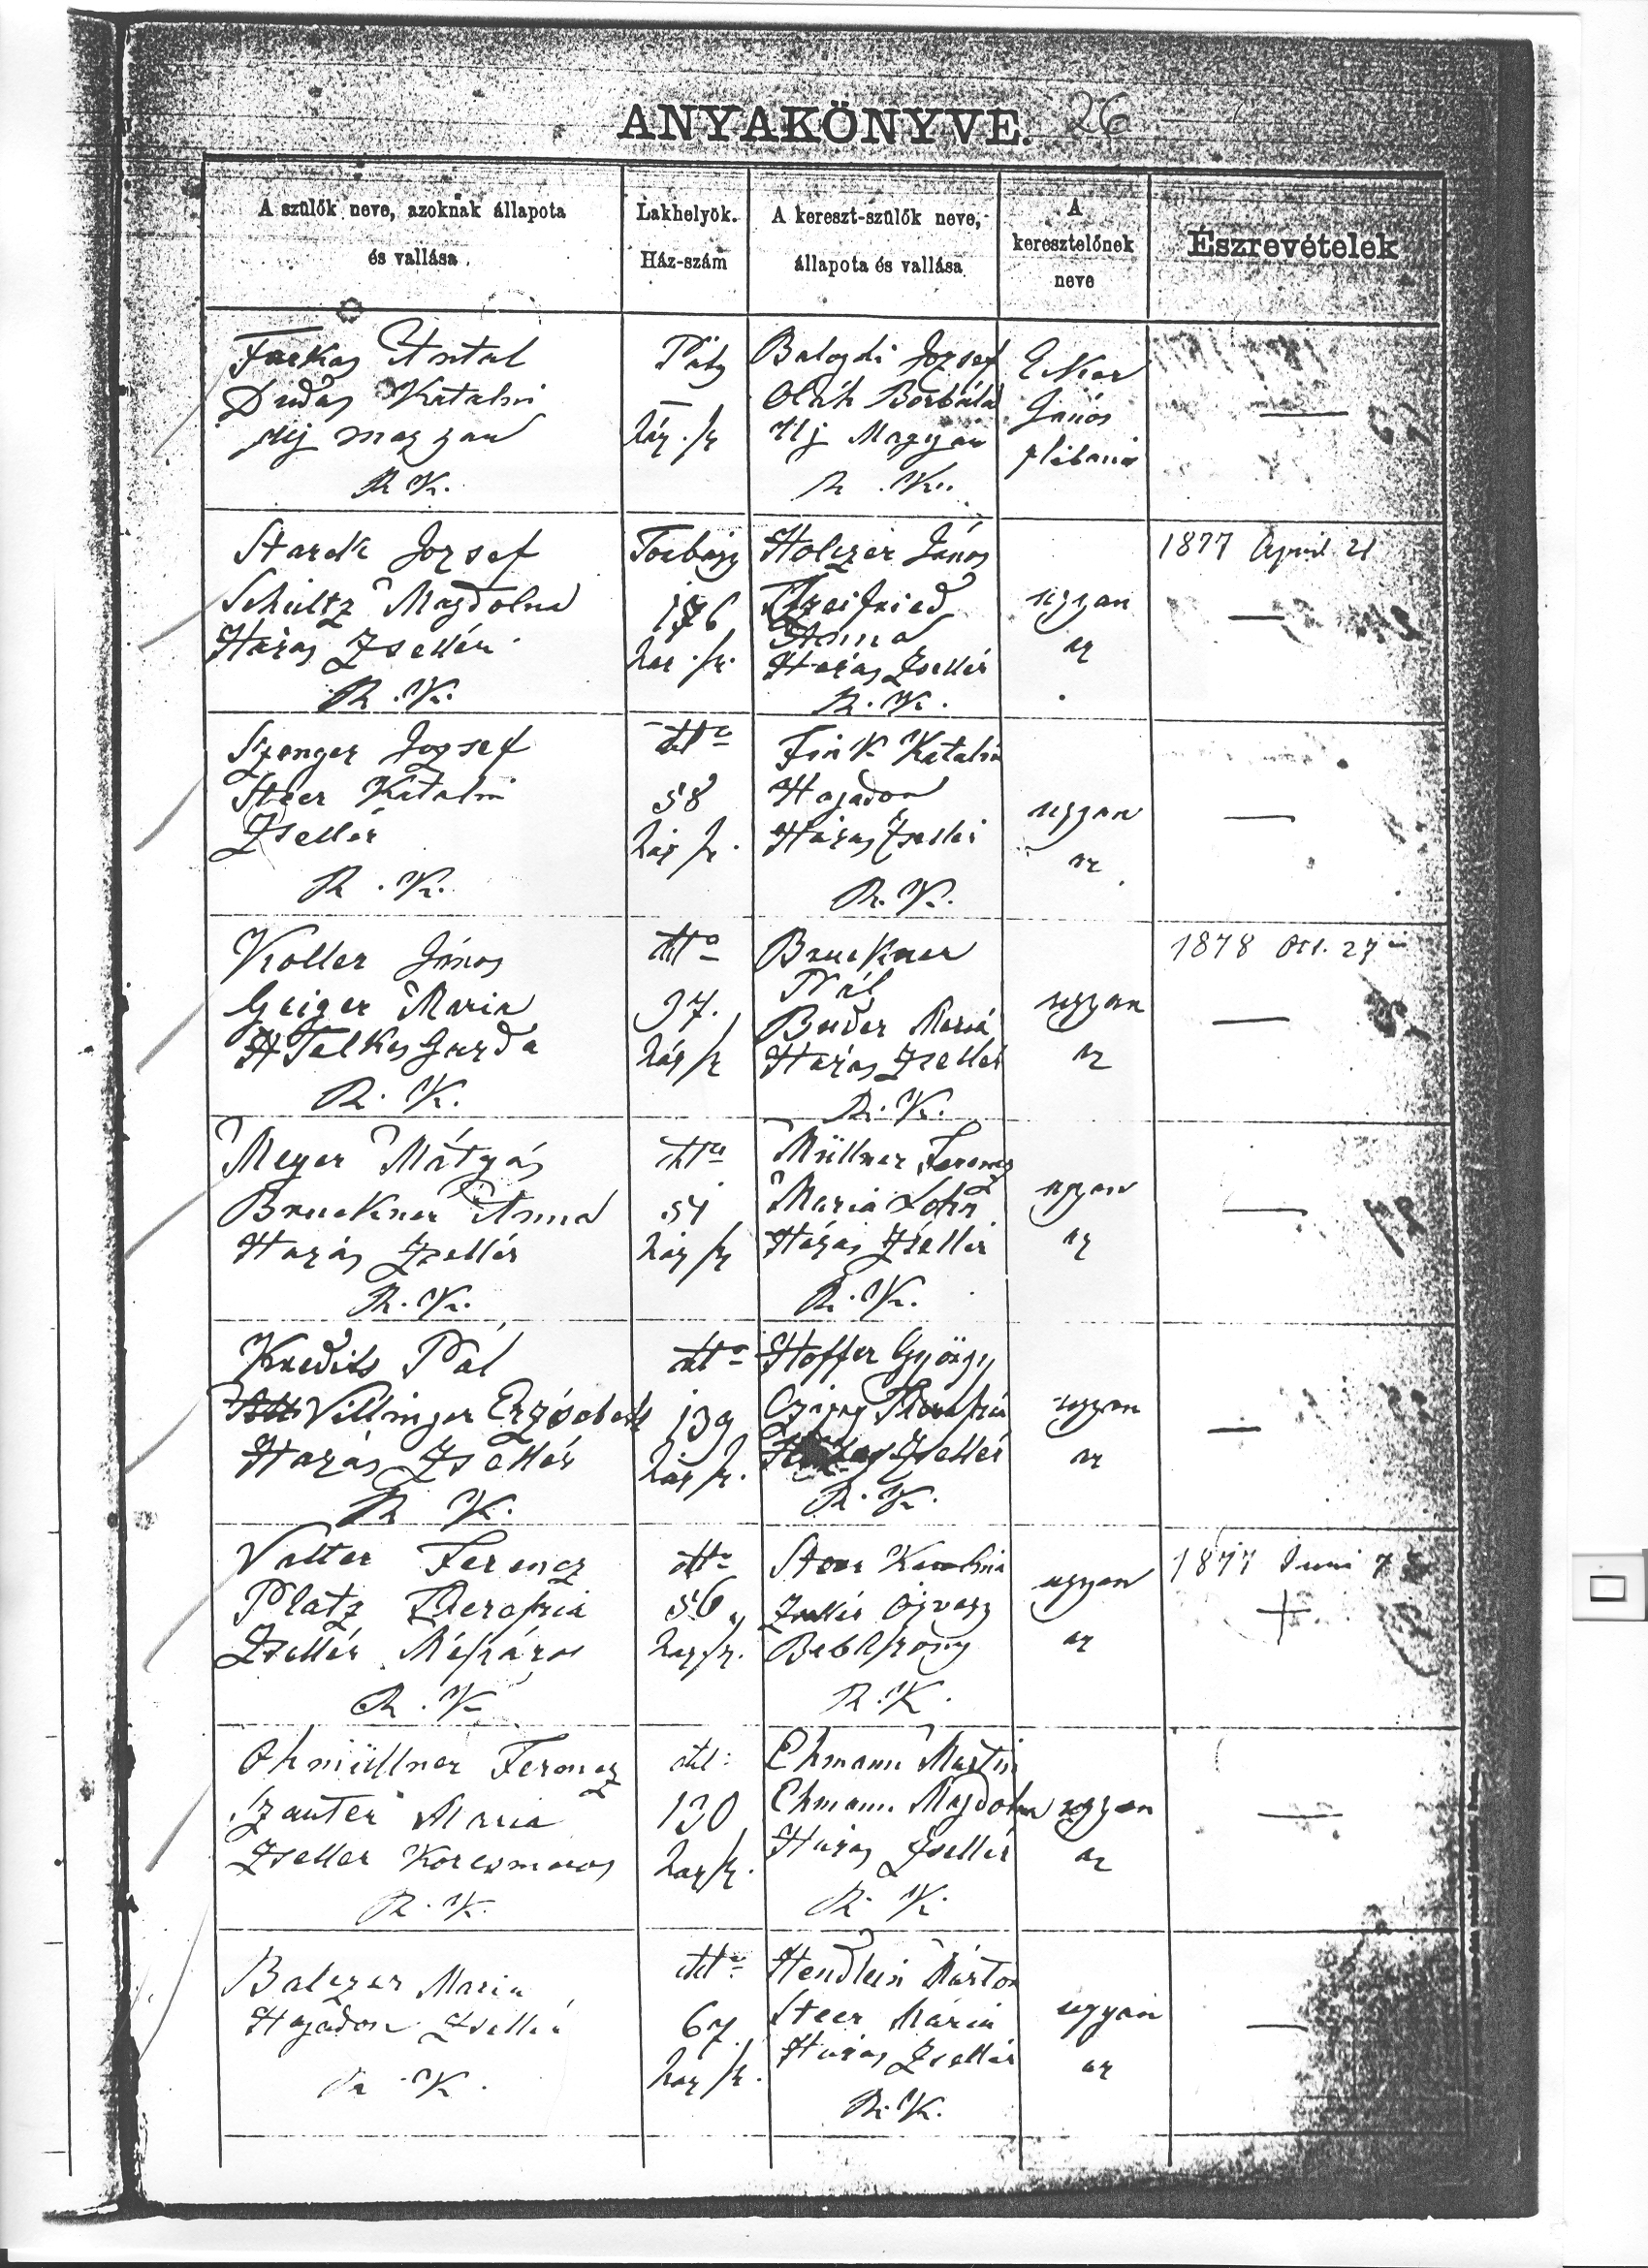 ANYAKÖNYVE. 26
A szülők neve, azoknak állapota
és vallása
Lakhelyök.
Ház-szám
A kereszt-szülők neve,
állapota és vallása
A
keresztelőnek
neve
Észrevételek
Farkas Antal
Dudás Katalin
Uj magyar
R K.
Páty
ház sz
Balogdi Jozsef
Oláh Borbála
Uj Magyar
R. K.
János
plébános
Stark Jozsef
Schultz Magdolna
Házas Zsellér
R. K.
Torbágy
176
ház sz.
Holczer János
Anna
Házas Zsellér
R. K.
ugyan
az
1877 April 21
—
Szenger Jozsef
Steer Katalin
Zsellér
R. K.
dtto
58
ház sz.
Fink Katalin
Hajadon
Házas Zsellér
R. K.
ugyan
az
—
Koller János
Geiger Maria
Telkes Gazda
R. K.
dtto
97.
ház sz
Bruckner
Pál
Buder Mariá
Házas Zsellér
R. K.
ugyan
az
1878 Oct. 27
—
Meyer Mátyás
Bruckner Anna
Házas Zsellér
R. K.
dtto
51
ház sz
Müllner Ferencz
Maria Lohn
Házas Zsellér
R. K.
ugyan
az
—
Kredits Pál
Villinger Erzsébeth
Házas Zsellér
R K.
dtto
139
ház sz.
Hoffer György
Házas Zsellér
R. K.
ugyan
az
—
Valter Ferencz
Platz Therezia
Zsellér Mészáros
R. K
dtto
56
ház sz.
Steer Karolina
Zsellér Özvegy
R. K.
ugyan
az
1877 Juni 7
+
Ohmüllner Ferencz
Szauter Maria
Zseller Korcsmaros
R. K.
dtto
130
ház sz.
Ehmann Martin
Ehmann Magdolna
Házas Zsellér
R. K.
ugyan
az
—
Balczer Maria
Hajadon Zsellér
R. K.
dtto
67.
ház sz.
Hendlein Márton
Steer Mária
Házas Zsellér
R. K.
ugyan
az
—